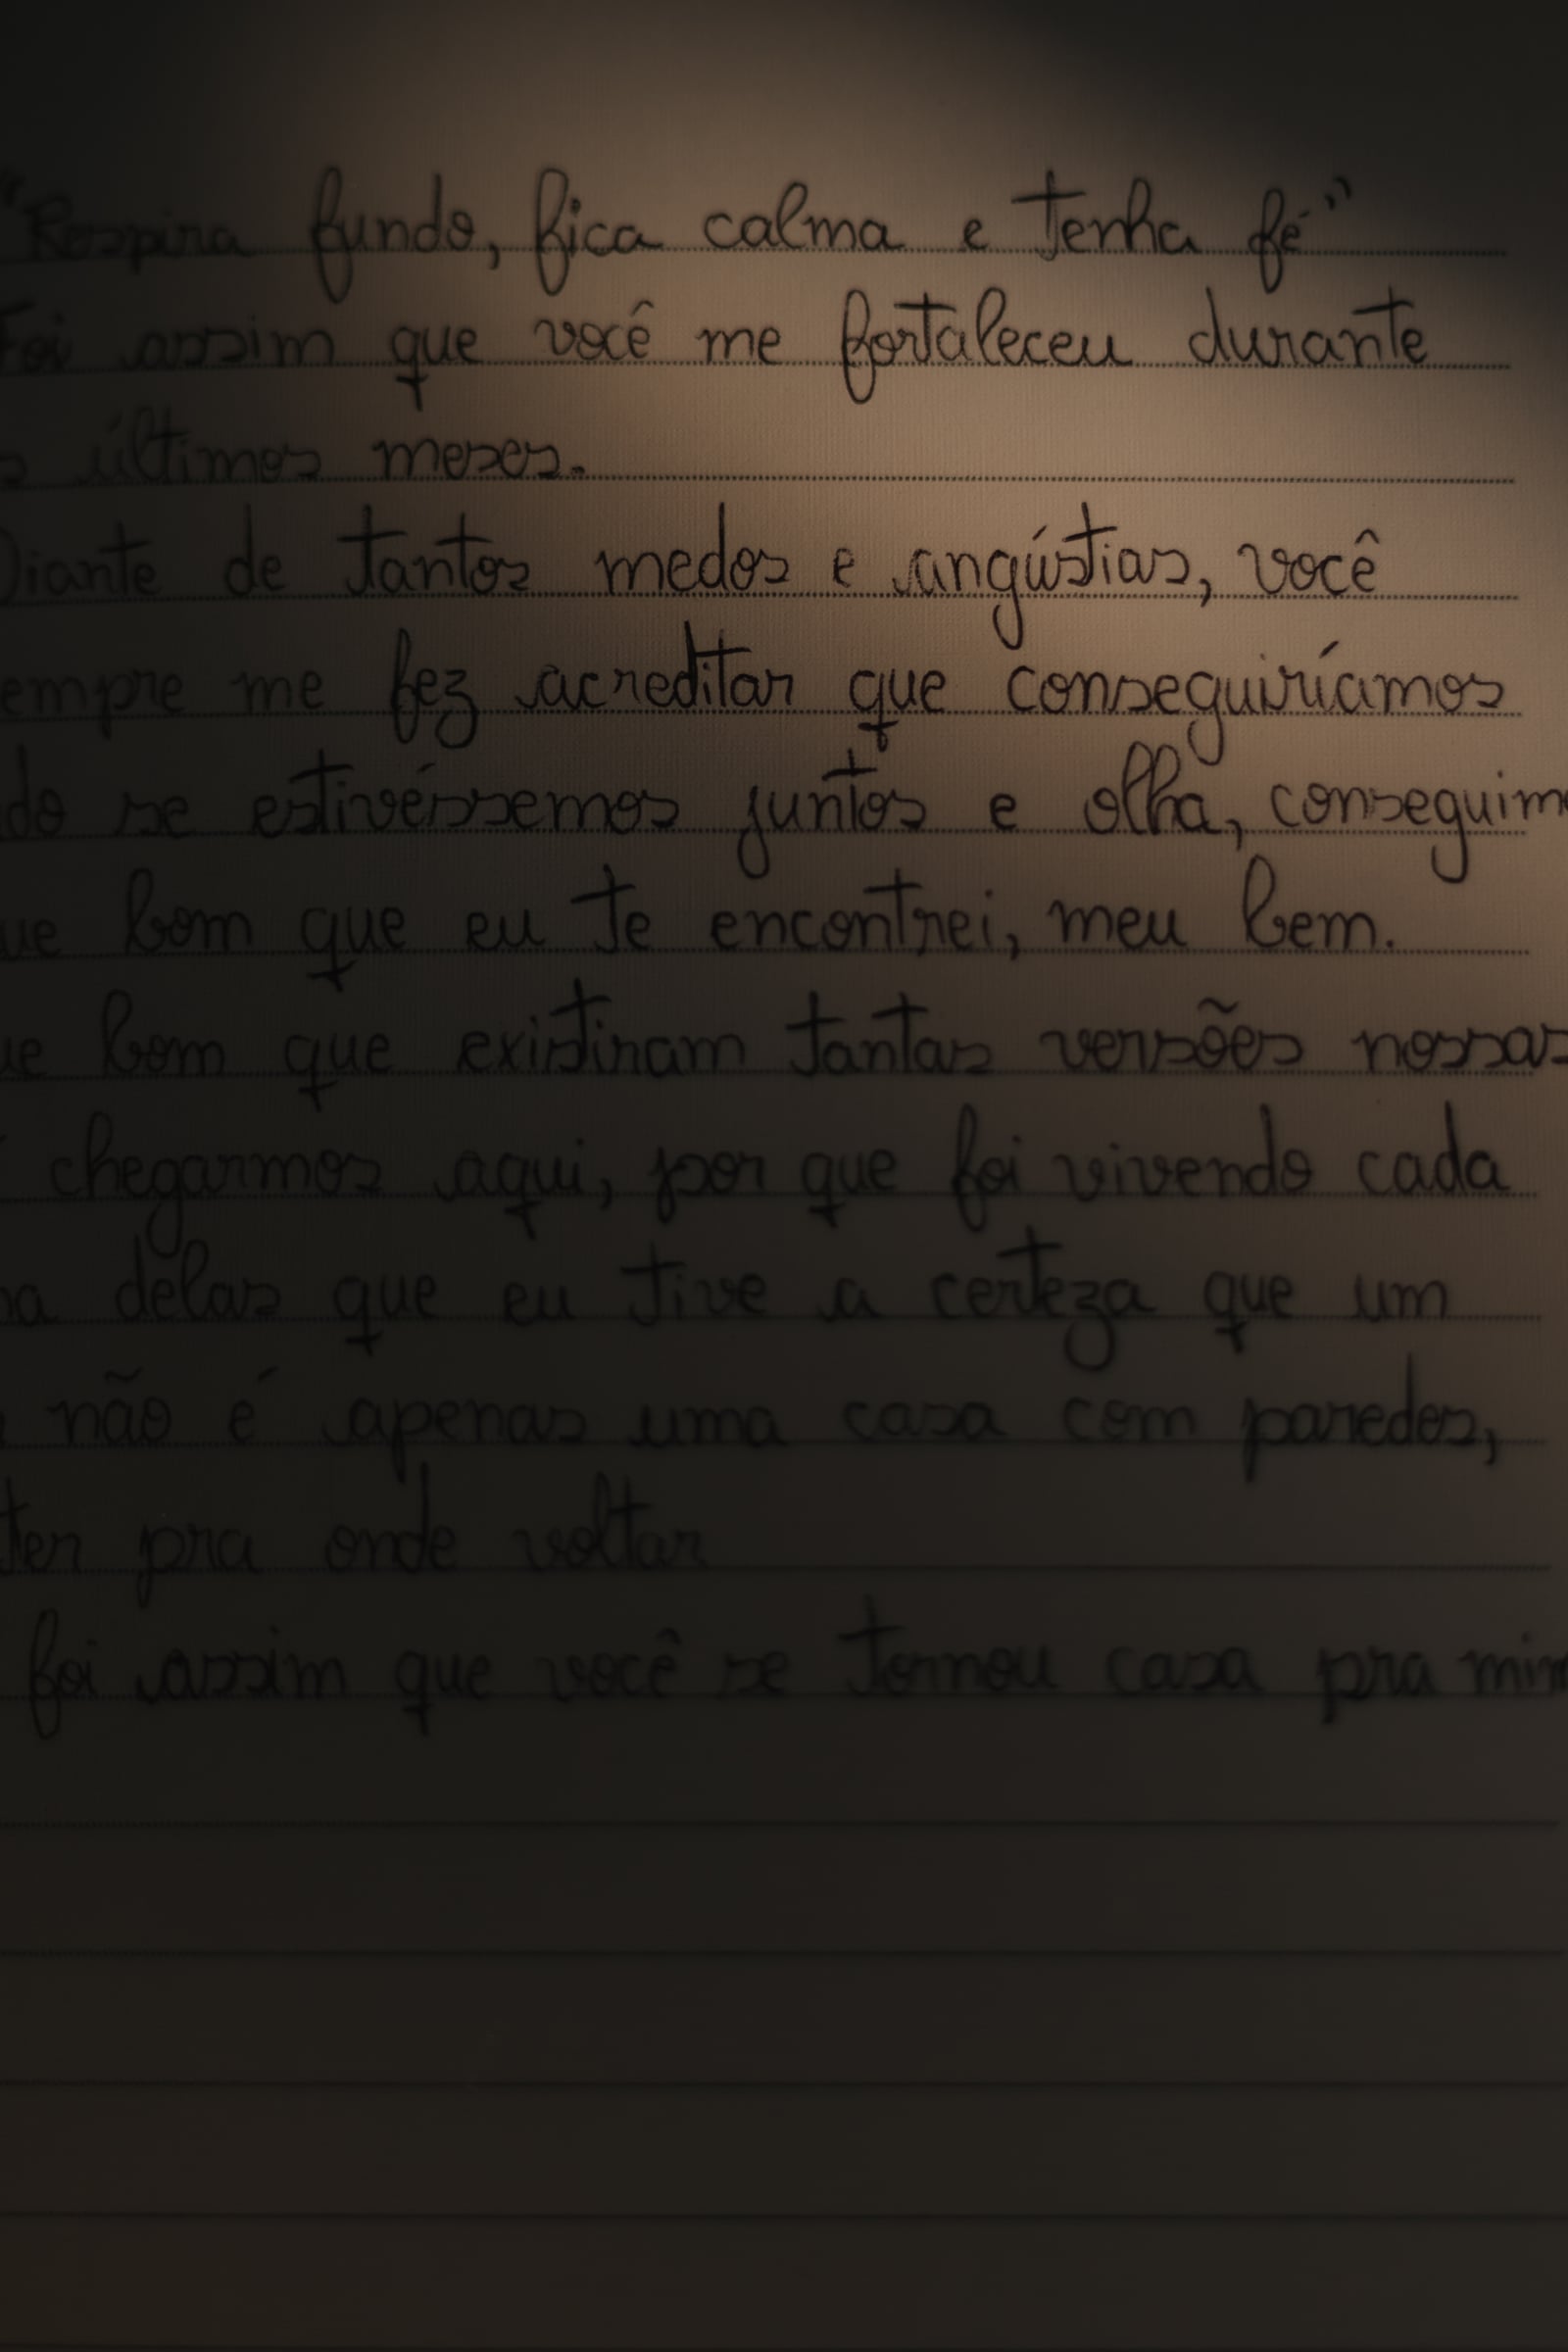 "Respira fundo, fica calma e tenha fé"
Foi assim que você me fortaleceu durante
s últimos meses.
Diante de tantos medos e angústias, você
empre me fez acreditar que conseguiríamos
do se estivéssemos juntos e olha, conseguimo
ue bom que eu te encontrei, meu bem.
ue bom que existiram tantas versões nossas
chegarmos aqui, por que foi vivendo cada
ma delas que eu tive a certeza que um
não é apenas uma casa com paredes,
ter pra onde voltar
foi assim que você se tornou casa pra mim